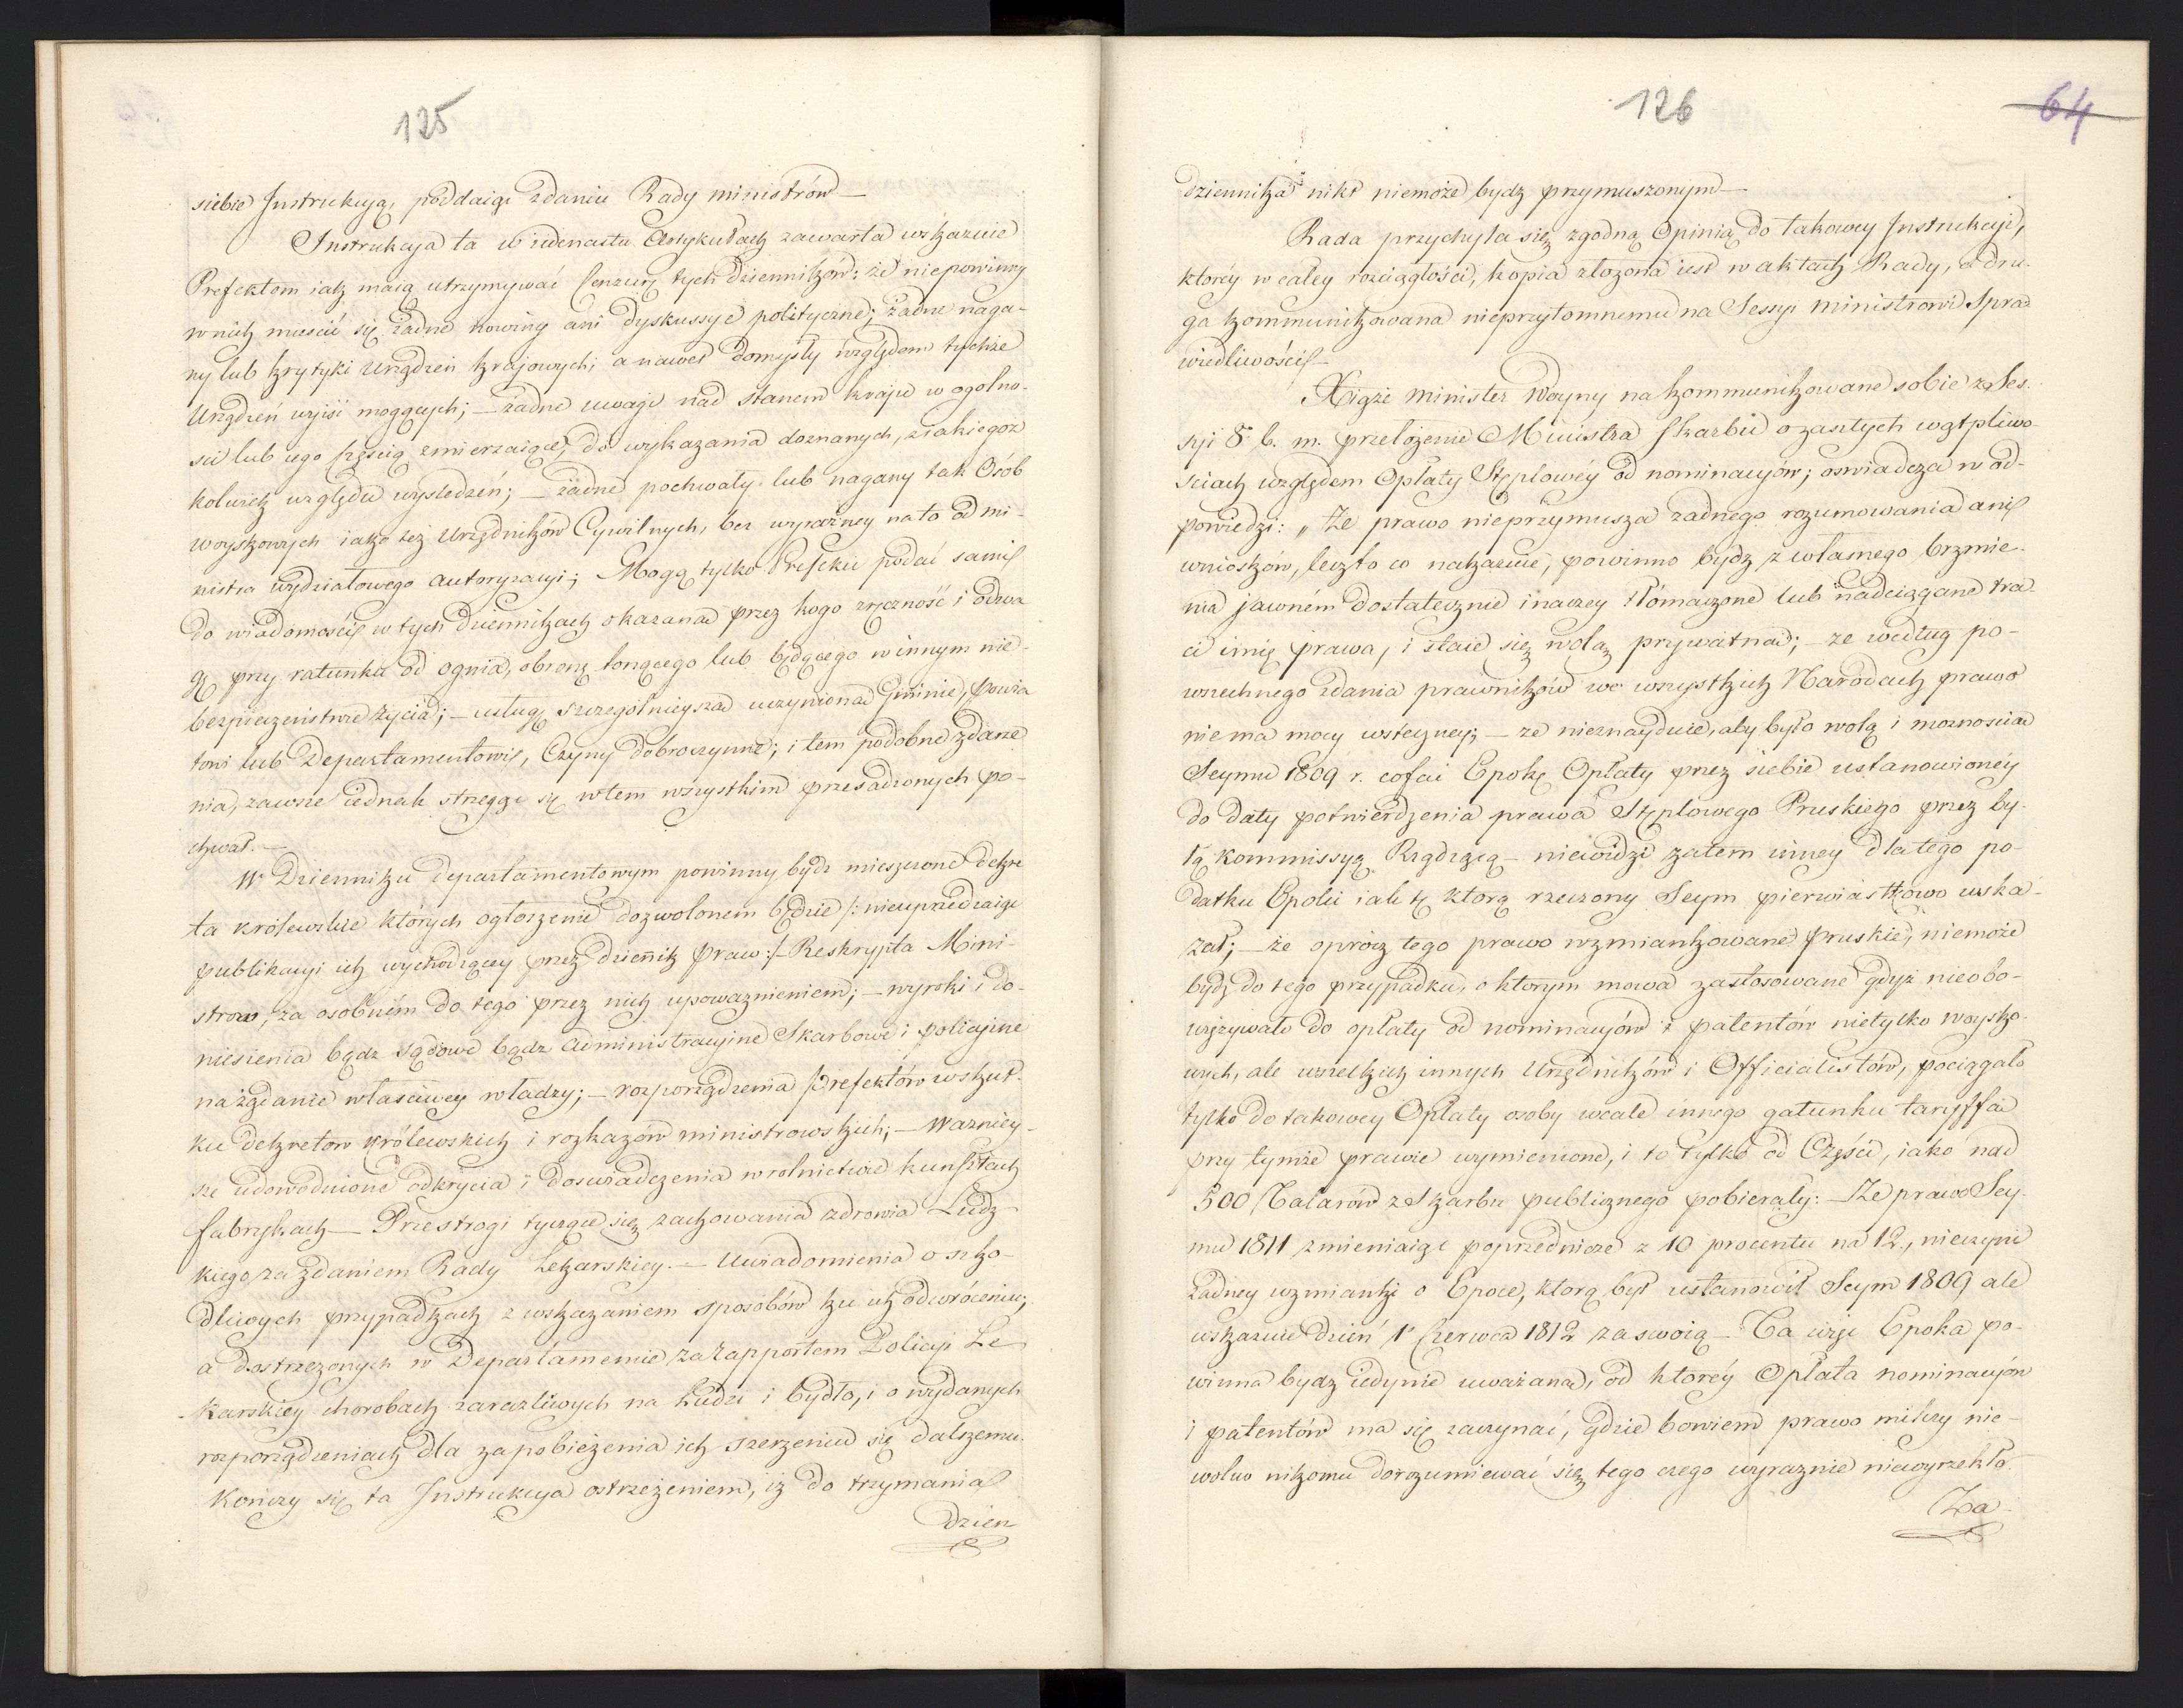 125
siebie Instrukcyą, poddaiąc zdaniu Rady ministrów —
Instrukcya ta w iedenastu Artykułach zawarta wskazuie
Prefektom iak maią utrzymywać Cenzurę tych Dzienników: że niepowinny
w nich mieścić się żadne nowiny ani dyskussye polityczne; żadne naga-
ny lub krytyki Urządzeń krajowych, a nawet domysły względem tychże
Urządzeń wyjść mogących; — żadne uwagi nad stanem kraju w ogolno-
sci lub iego częścią zmierzaiące, do wykazania doznanych, z iakiegoż
kolwiek względu wysledzeń; — żadne pochwały lub nagany tak Osób
woyskowych iako też Urzędników Cywilnych, bez wyrażney na to od mi-
nistra wydziałowego autoryzacyi; Mogą tylko Prefekci podać sami
do wiadomości w tych dziennikach okazaną przez kogo zręczność i odwa-
gę przy ratunku od ognia, obronę tonącego lub będącego w innym nie-
bezpieczeństwie życia; — usługę szczegolnieyszą uczynioną Gminie, powia
towi lub Departamentowi, Czyny dobroczynne; i tem podobne zdarze
nia, zawsze iednak strzegąc się w tem wszystkim przesadzonych po-
chwał. —
W Dzienniku departamentowym powinny bydz mieszczone dekre
ta królewskie których ogłoszenie dozwolonem będzie /: nieuprzedzaiąc
publikacyi ich wychodzącey przez dziennik praw :/ — Reskrypta Mini-
strow, za osobném do tego przez nich upoważnieniem; — wyroki i do-
niesienia bądz sądowe bądz administracyine Skarbowe i policyine
na żądanie właściwey władzy; — rozporządzenia prefektów w skut-
ku dekretów królewskich i rozkazów ministrowskich; — Ważniey-
sze udowodnione odkrycia i doswiadczenia w rolnictwie kunsztach
fabrykach — Przestrogi tyczące się zachowania zdrowia Ludz
kiego za zdaniem Rady Lekarskiey. — Uwiadomienia o szko-
dliwych przypadkach z wskazaniem sposobów ku ich odwróceniu;
a dostrzeżonych w Departamencie za rapportem Policyi Le-
karskiey chorobach zarazliwych na Ludzi i bydło, i o wydanych
rozporządzeniach dla zapobieżenia ich szerzeniu się dalszemu.
Kończy się ta Instrukcya ostrzeżeniem, iż do trzymania
dzien
126
64
dziennika nikt niemoże bydz przymuszonym —
Rada przychyla się zgodną Opinią do takowey Instrukcyi,
ktorey w całey rozciągłości, kopia złożona iest w aktach Rady, a dru-
ga kommunikowana nieprzytomnemu na Sessyi ministrowi Spra-
wiedliwości —
Xiąże minister Woyny na kommunikowane sobie z Ses-
syi 8. b. m. przełożenie Ministra Skarbu o zaszłych wątpliwo-
ściach względem Opłaty Stęplowéy od nominacyów; oswiadcza w od-
powiedzi: „ Ze prawo nieprzymusza żadnego rozumowania ani
wniosków, lecz to co nakazuie, powinno bydz z własnego brzmie-
nia jawném dostatecznie inaczey tłómaczone lub nadciągane tra-
ci imię prawa, i staie się wolą prywatną; — ze według po-
wszechnego zdania prawników we wszystkich Narodach prawo
niema mocy wsteczney; — ze nieznayduie, aby było wolą i moznoscią
Seymu 1809 r. cofać Epokę Opłaty przez siebie ustanowionéy
do daty potwierdzenia prawa Stęplowego Pruskiego przez by-
łą Kommissyą Rządzącą — niewidzi zatem inney dla tego po-
datku Epoki iak tę którą rzeczony Seym pierwiastkowo wska-
zał; — że oprócz tego prawo wzmiankowane pruskie, niemoże
bydz do tego przypadku, o ktorym mowa zastosowane gdyż nieobo-
wiązywało do opłaty od nominacyów i patentów nietylko woysko-
wych, ale wszelkich innych Urzędników i Officialistów, pociągało
tylko do takowey Opłaty osoby wcale innego gatunku taryffą
przy tymże prawie wymienione, i to tylko od Części, iako nad
500 Talarów z Skarbu publicznego pobierały: — Ze prawo Sey-
mu 1811 zmieniaiąc poprzednicze z 10 procentu na 12, nieczyni
żadney wzmianki o Epoce, którą był ustanowił Seym 1809 ale
wskazuie dzień 1. Czerwca 1812 za swoią — Ta więc Epoka po-
winna bydz iedynie uważaną, od ktoréy Opłata nominacyów
i patentów ma się zaczynać, gdzie bowiem prawo milczy nie-
wolno nikomu dorozumiewać się tego czego wyraznie niewyrzekło.
Za-